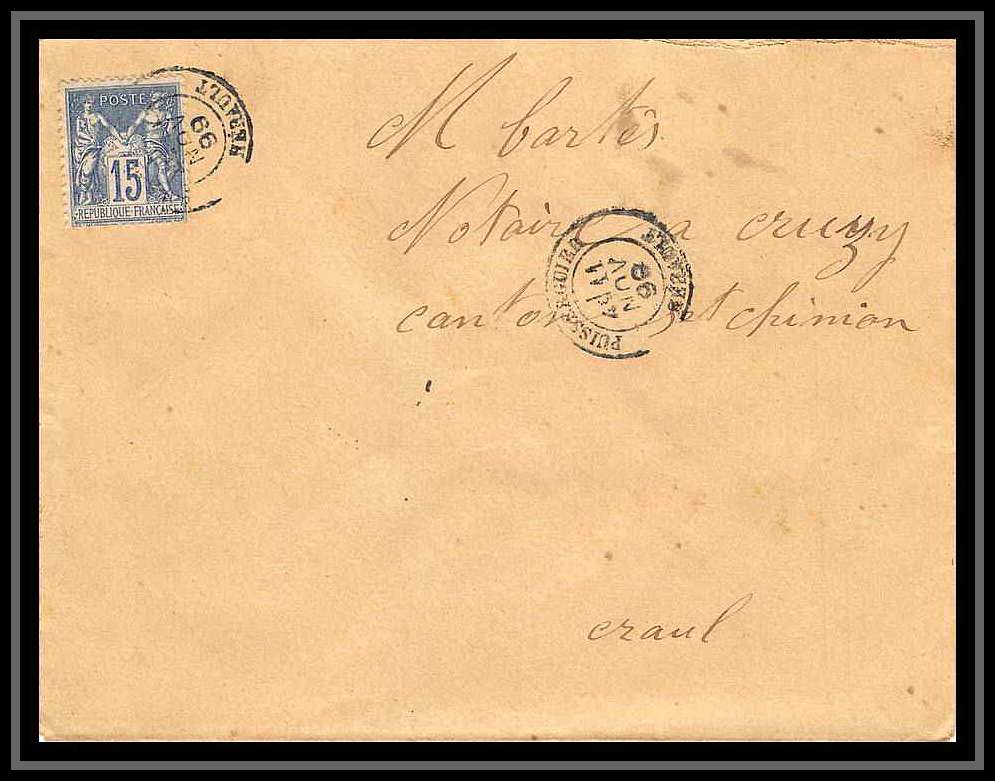 POSTE
15
REPUBLIQUE FRANÇAISE
HERAULT
M bartès
Notaire a cruzy
canton st chinion
PUISSERGUIER HERAULT
craul